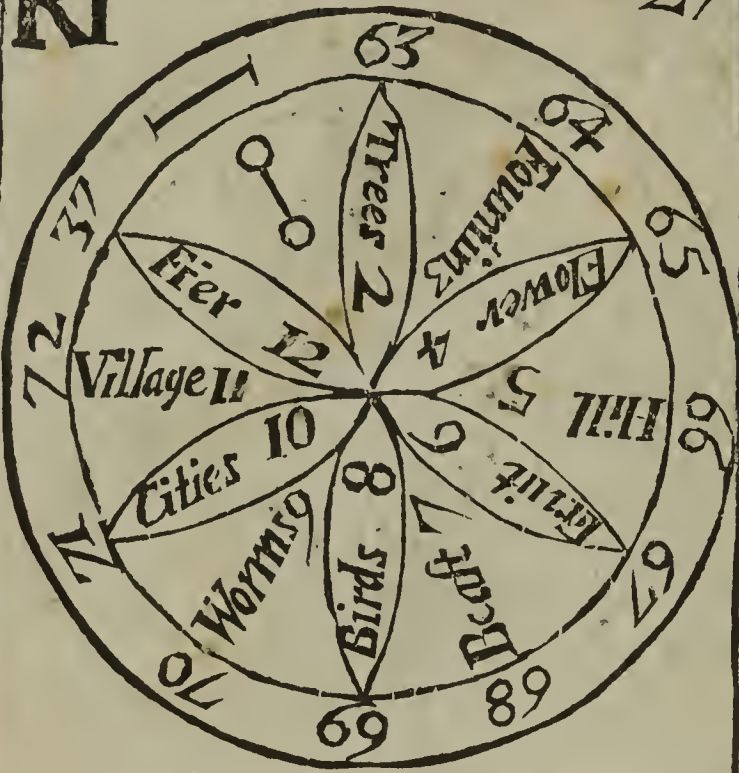 63
64
65
66
67
68
69
70
71
72
37
Trees 2
Flower 4
Hill 5
Fruit 6
Beaſt 7
Birds 8
Worms 9
Cities 10
Village 11
Fier 12